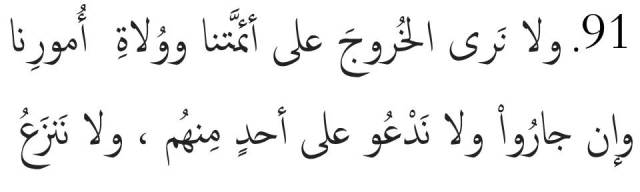 91. ولا نَرى الخُروجَ على أئمَّتنا ووُلاةِ أُمورِنا
وإن جارُواْ ولا نَدْعُو على أحدٍ مِنهُم ، ولا نَنزَعُ